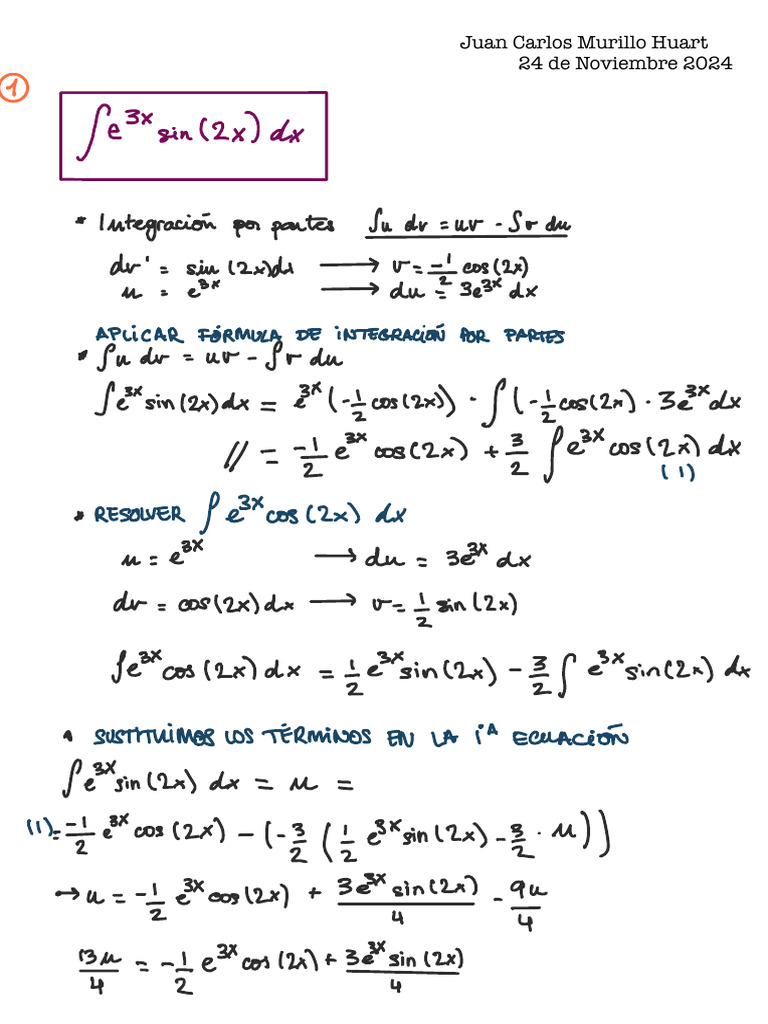 Juan Carlos Murillo Huart
24 de Noviembre 2024
1
∫e^{3x} sin(2x) dx
* Integración por partes ∫u dv = uv - ∫v du
dv' = sin(2x)dx → v = -1/2 cos(2x)
u = e^{3x} → du = 3e^{3x} dx
APLICAR FÓRMULA DE INTEGRACIÓN POR PARTES
* ∫u dv = uv - ∫v du
∫e^{3x} sin(2x) dx = e^{3x} (-1/2 cos(2x)) · ∫(-1/2 cos(2x) · 3e^{3x} dx
// = -1/2 e^{3x} cos(2x) + 3/2 ∫e^{3x} cos(2x) dx
(1)
* RESOLVER ∫e^{3x} cos(2x) dx
u = e^{3x} → du = 3e^{3x} dx
dv = cos(2x) dx → v = 1/2 sin(2x)
∫e^{3x} cos(2x) dx = 1/2 e^{3x} sin(2x) - 3/2 ∫ e^{3x} sin(2x) dx
* SUSTITUIMOS LOS TÉRMINOS EN LA 1ª ECUACIÓN
∫e^{3x} sin(2x) dx = u =
(1) = -1/2 e^{3x} cos(2x) - (-3/2 (1/2 e^{3x} sin(2x) - 3/2 · u))
→ u = -1/2 e^{3x} cos(2x) + 3e^{3x} sin(2x)/4 - 9u/4
13u/4 = -1/2 e^{3x} cos(2x) + 3e^{3x} sin(2x)/4